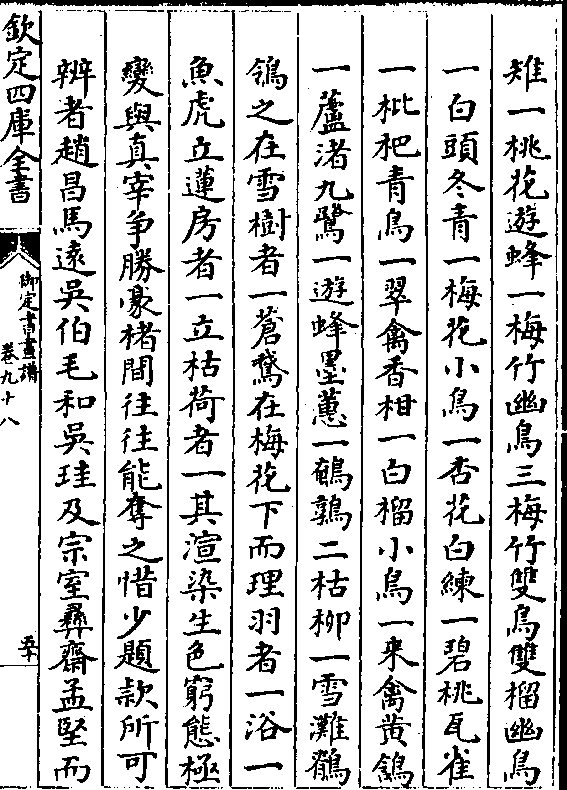 雉一桃花遊蜂一梅竹幽鳥三梅竹雙鳥雙榴幽鳥
一白頭冬青一梅花小鳥一杏花白練一碧桃瓦雀
一枇杷青鳥一翠禽香柑一白榴小鳥一來禽黄鷂
一蘆渚九鷺一遊蜂墨蕙一鵪鶉二枯柳一雪灘鶺
鴒之在雪樹者一蒼鵞在梅花下而理羽者一浴一
魚虎立蓮房者一立枯荷者一其渲染生色窮態極
變與真宰争勝豪楮間往往能奪之惜少題款所可
辨者趙昌馬遠吳伯毛和吳珪及宗室彛齋孟堅而
欽定四庫全書
御定書畫譜
卷九十八